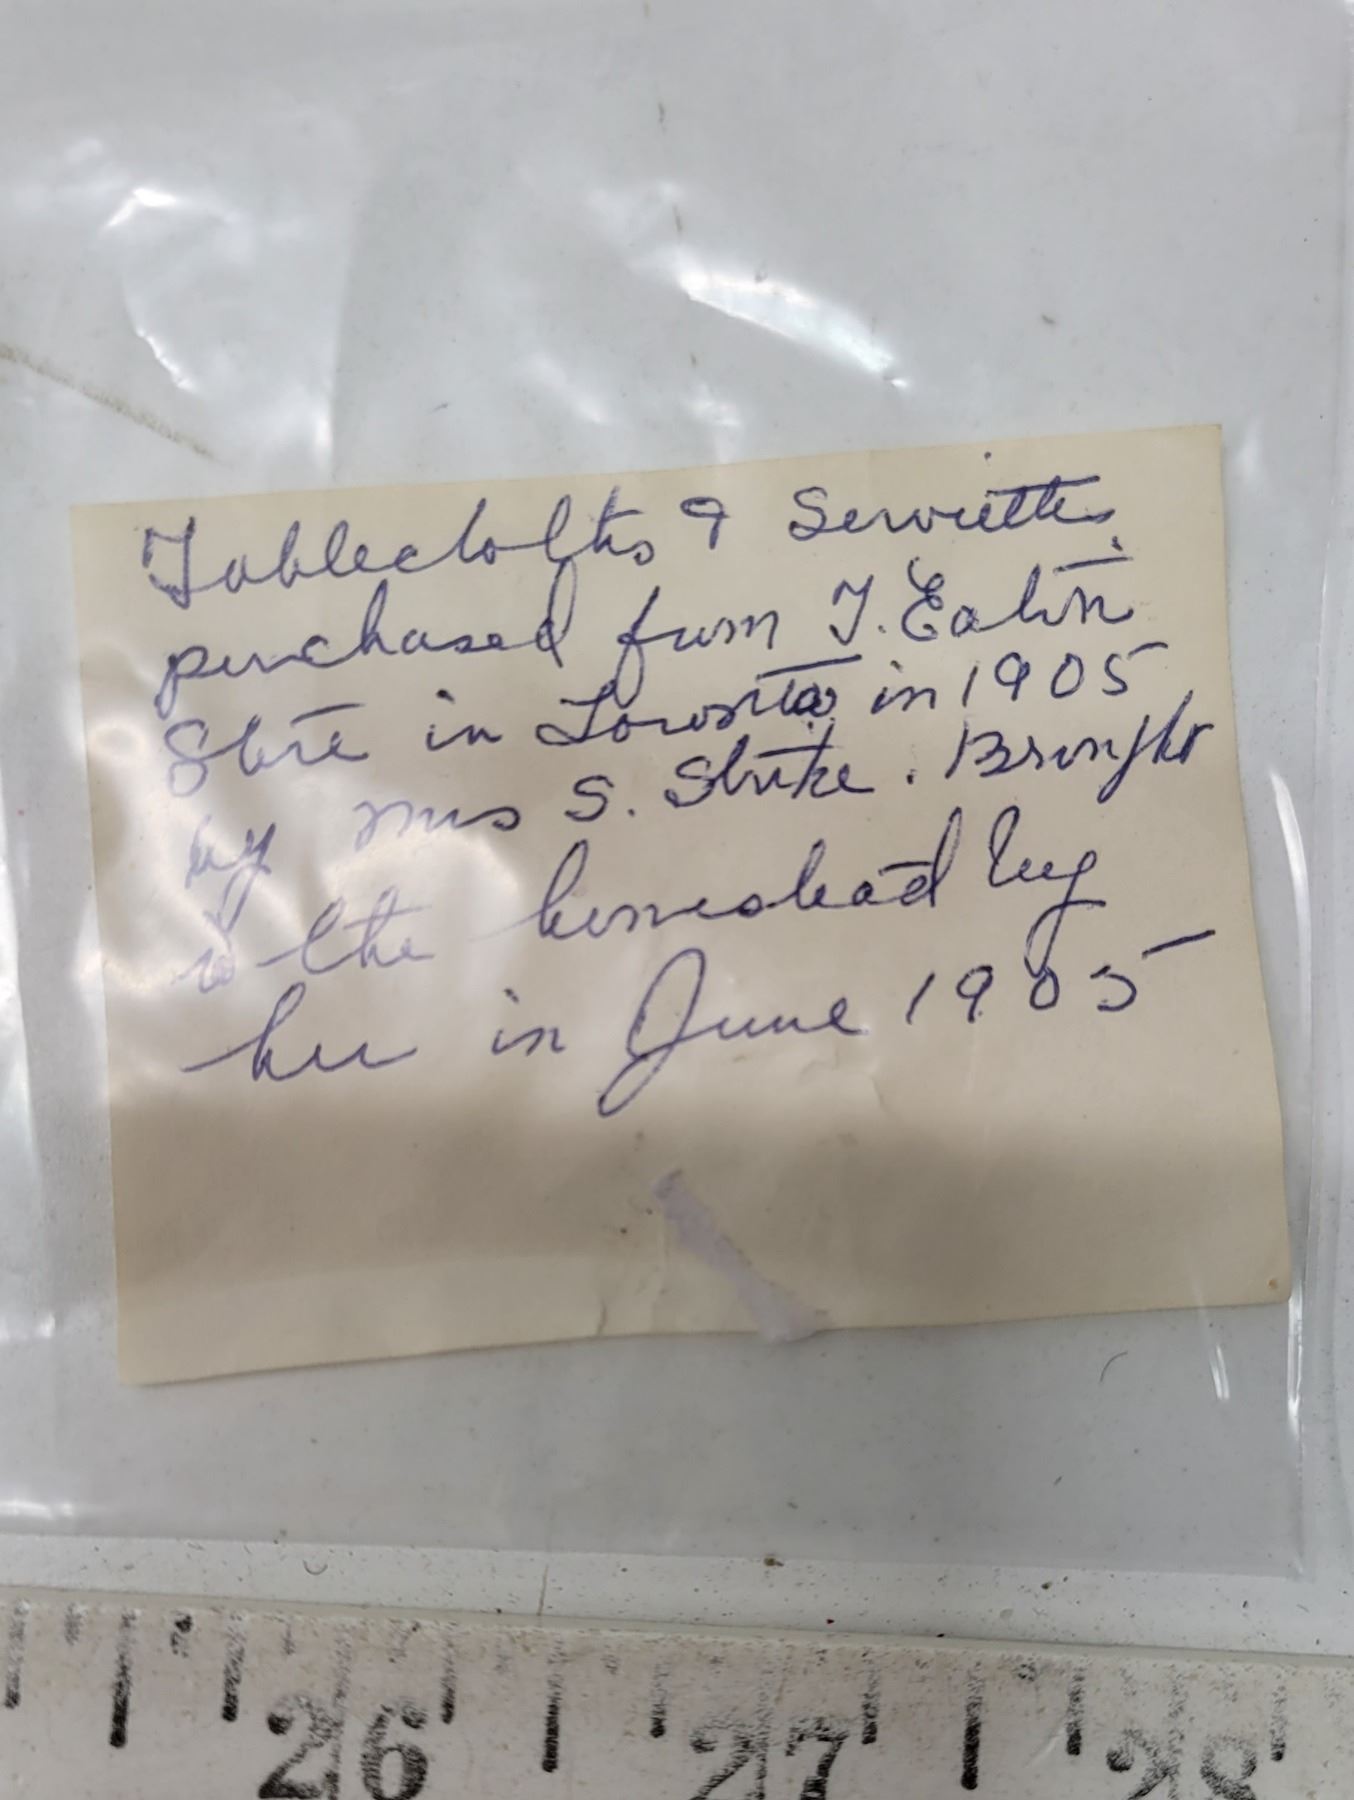 Tablecloths & Serviettes
purchased from T. Eaton
Store in Toronto in 1905
by Mrs S. Stutke. Brought
to the homestead by
her in June 1905
26 27 28